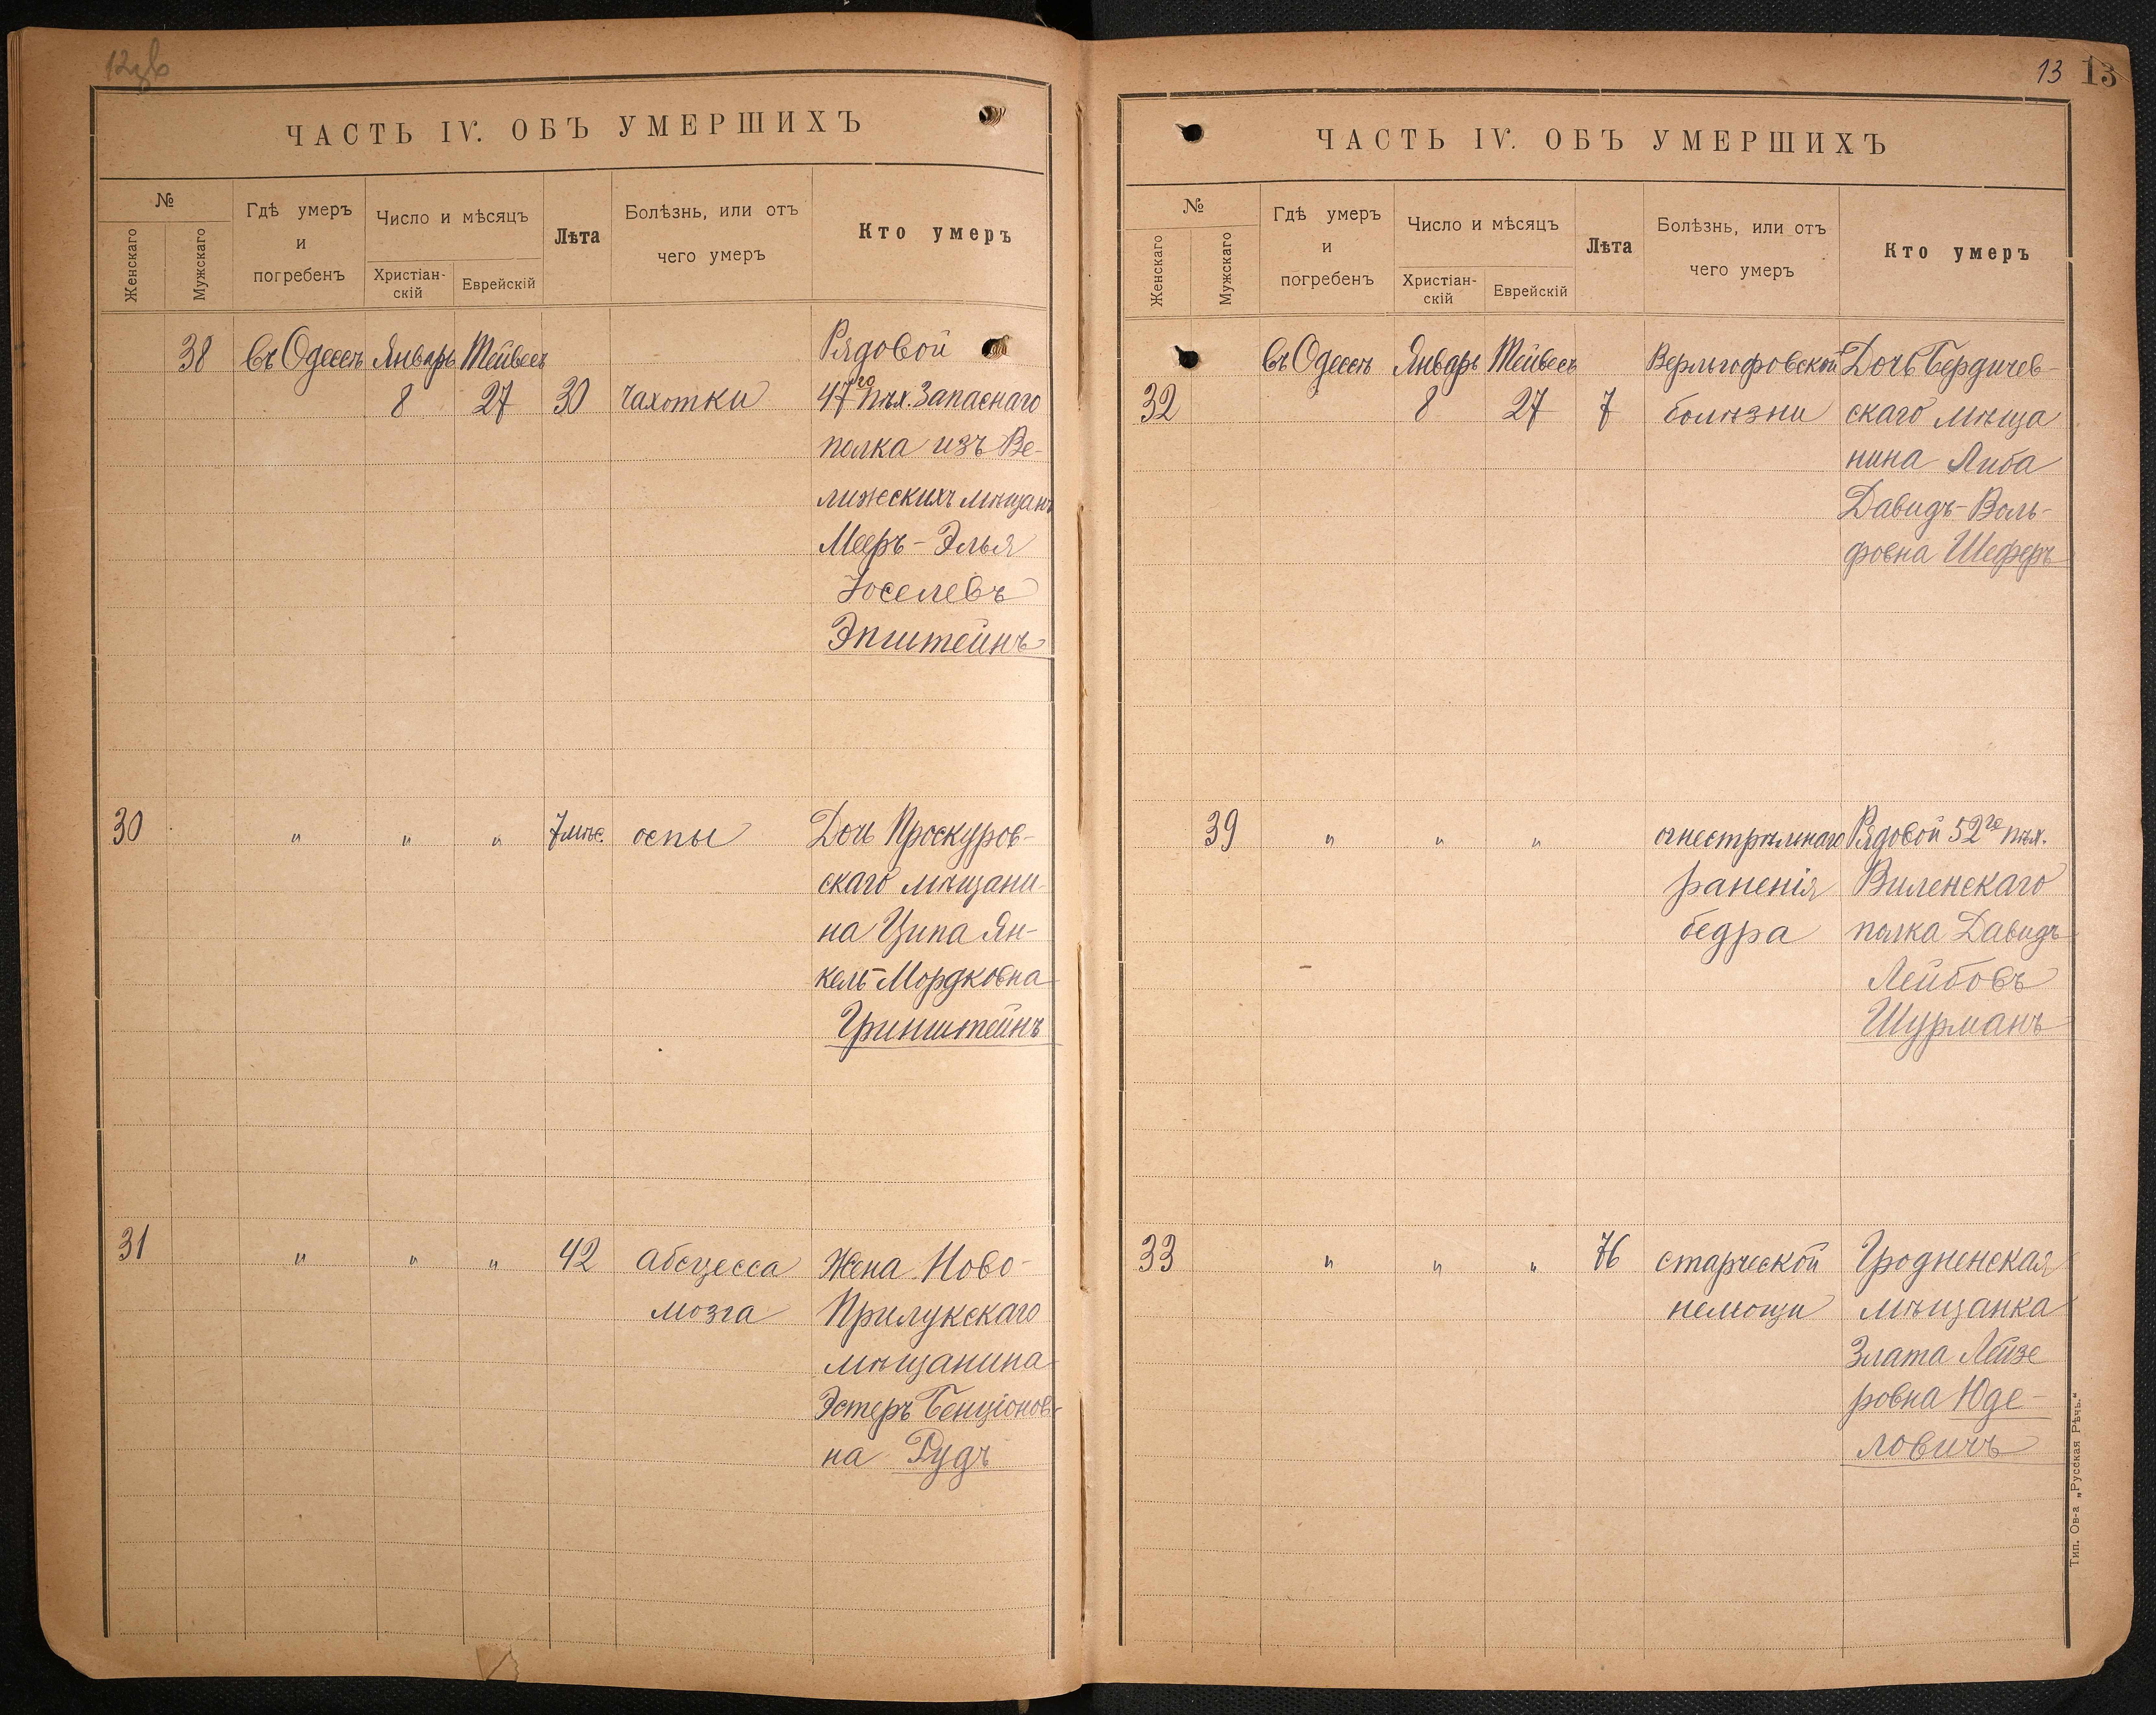 12зв
ЧАСТЬ IV. ОБЪ УМЕРШИХЪ
№
Женскаго
Мужскаго
Гдѣ умеръ
и
погребенъ
Число и мѣсяцъ
Христіан-
скій
Еврейскій
Лѣта
Болѣзнь, или отъ
чего умеръ
Кто умеръ
38 въ Одессѣ Январь Тейвесъ Рядовой
8 27 30 чахотки 47го пѣх. Запаснаго
полка изъ Ве-
лижскихъ мѣщанъ
Мееръ-Элья
Іоселевъ
Эпштейнъ
30 " " " 7 мѣс. оспы Дочь Проскуров-
скаго мѣщани-
на Ципа Ян-
кель-Мордковна
Гринштейнъ
31 " " " 42 абсцесса Жена Ново-
мозга Прилукскаго
мѣщанина
Эстеръ Бенціонов-
на Рудъ
13 13
ЧАСТЬ IV. ОБЪ УМЕРШИХЪ
№
Женскаго
Мужскаго
Гдѣ умеръ
и
погребенъ
Число и мѣсяцъ
Христіан-
скій
Еврейскій
Лѣта
Болѣзнь, или отъ
чего умеръ
Кто умеръ
въ Одессѣ Январь Тейвесъ Верльгофовской Дочь Бердичев-
32 8 27 7 болѣзни скаго мѣща
нина Либа
Давидъ-Воль-
фовна Шеферъ
39 " " " огнестрѣльнаго Рядовой 52го пѣх.
раненія Виленскаго
бедра полка Давидъ
Лейбовъ
Шурманъ
33 " " " 76 старческой Гродненская
немощи мѣщанка
Злата Лейзе
ровна Юде-
ловичъ
Тип. Ов-а „Русская Рѣчь."